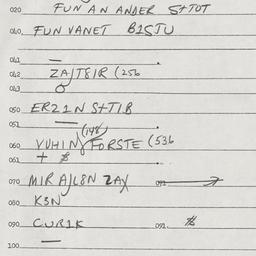 020 FUN AN ANDER S+TOT
040 FUN VANET B1STU
041 —
042 ZAJT81R (256
043 O
050 ERZ1N S+TIB
051 —
(148)
060 VUHIN FORSTE (536
061 +
070 MIR AJL8N ZAX 092
080 K3N
090 CUR1K 091.
100 —